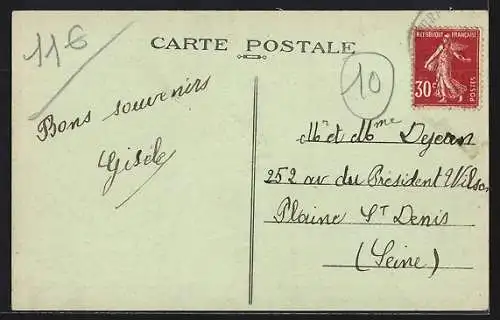 11€
CARTE POSTALE
10
REPUBLIQUE FRANÇAISE
30c
POSTES
Bons souvenirs
Gisèle
Mr et Mme Dejean
252 av du Président Wilson
Plaine St Denis
(Seine)